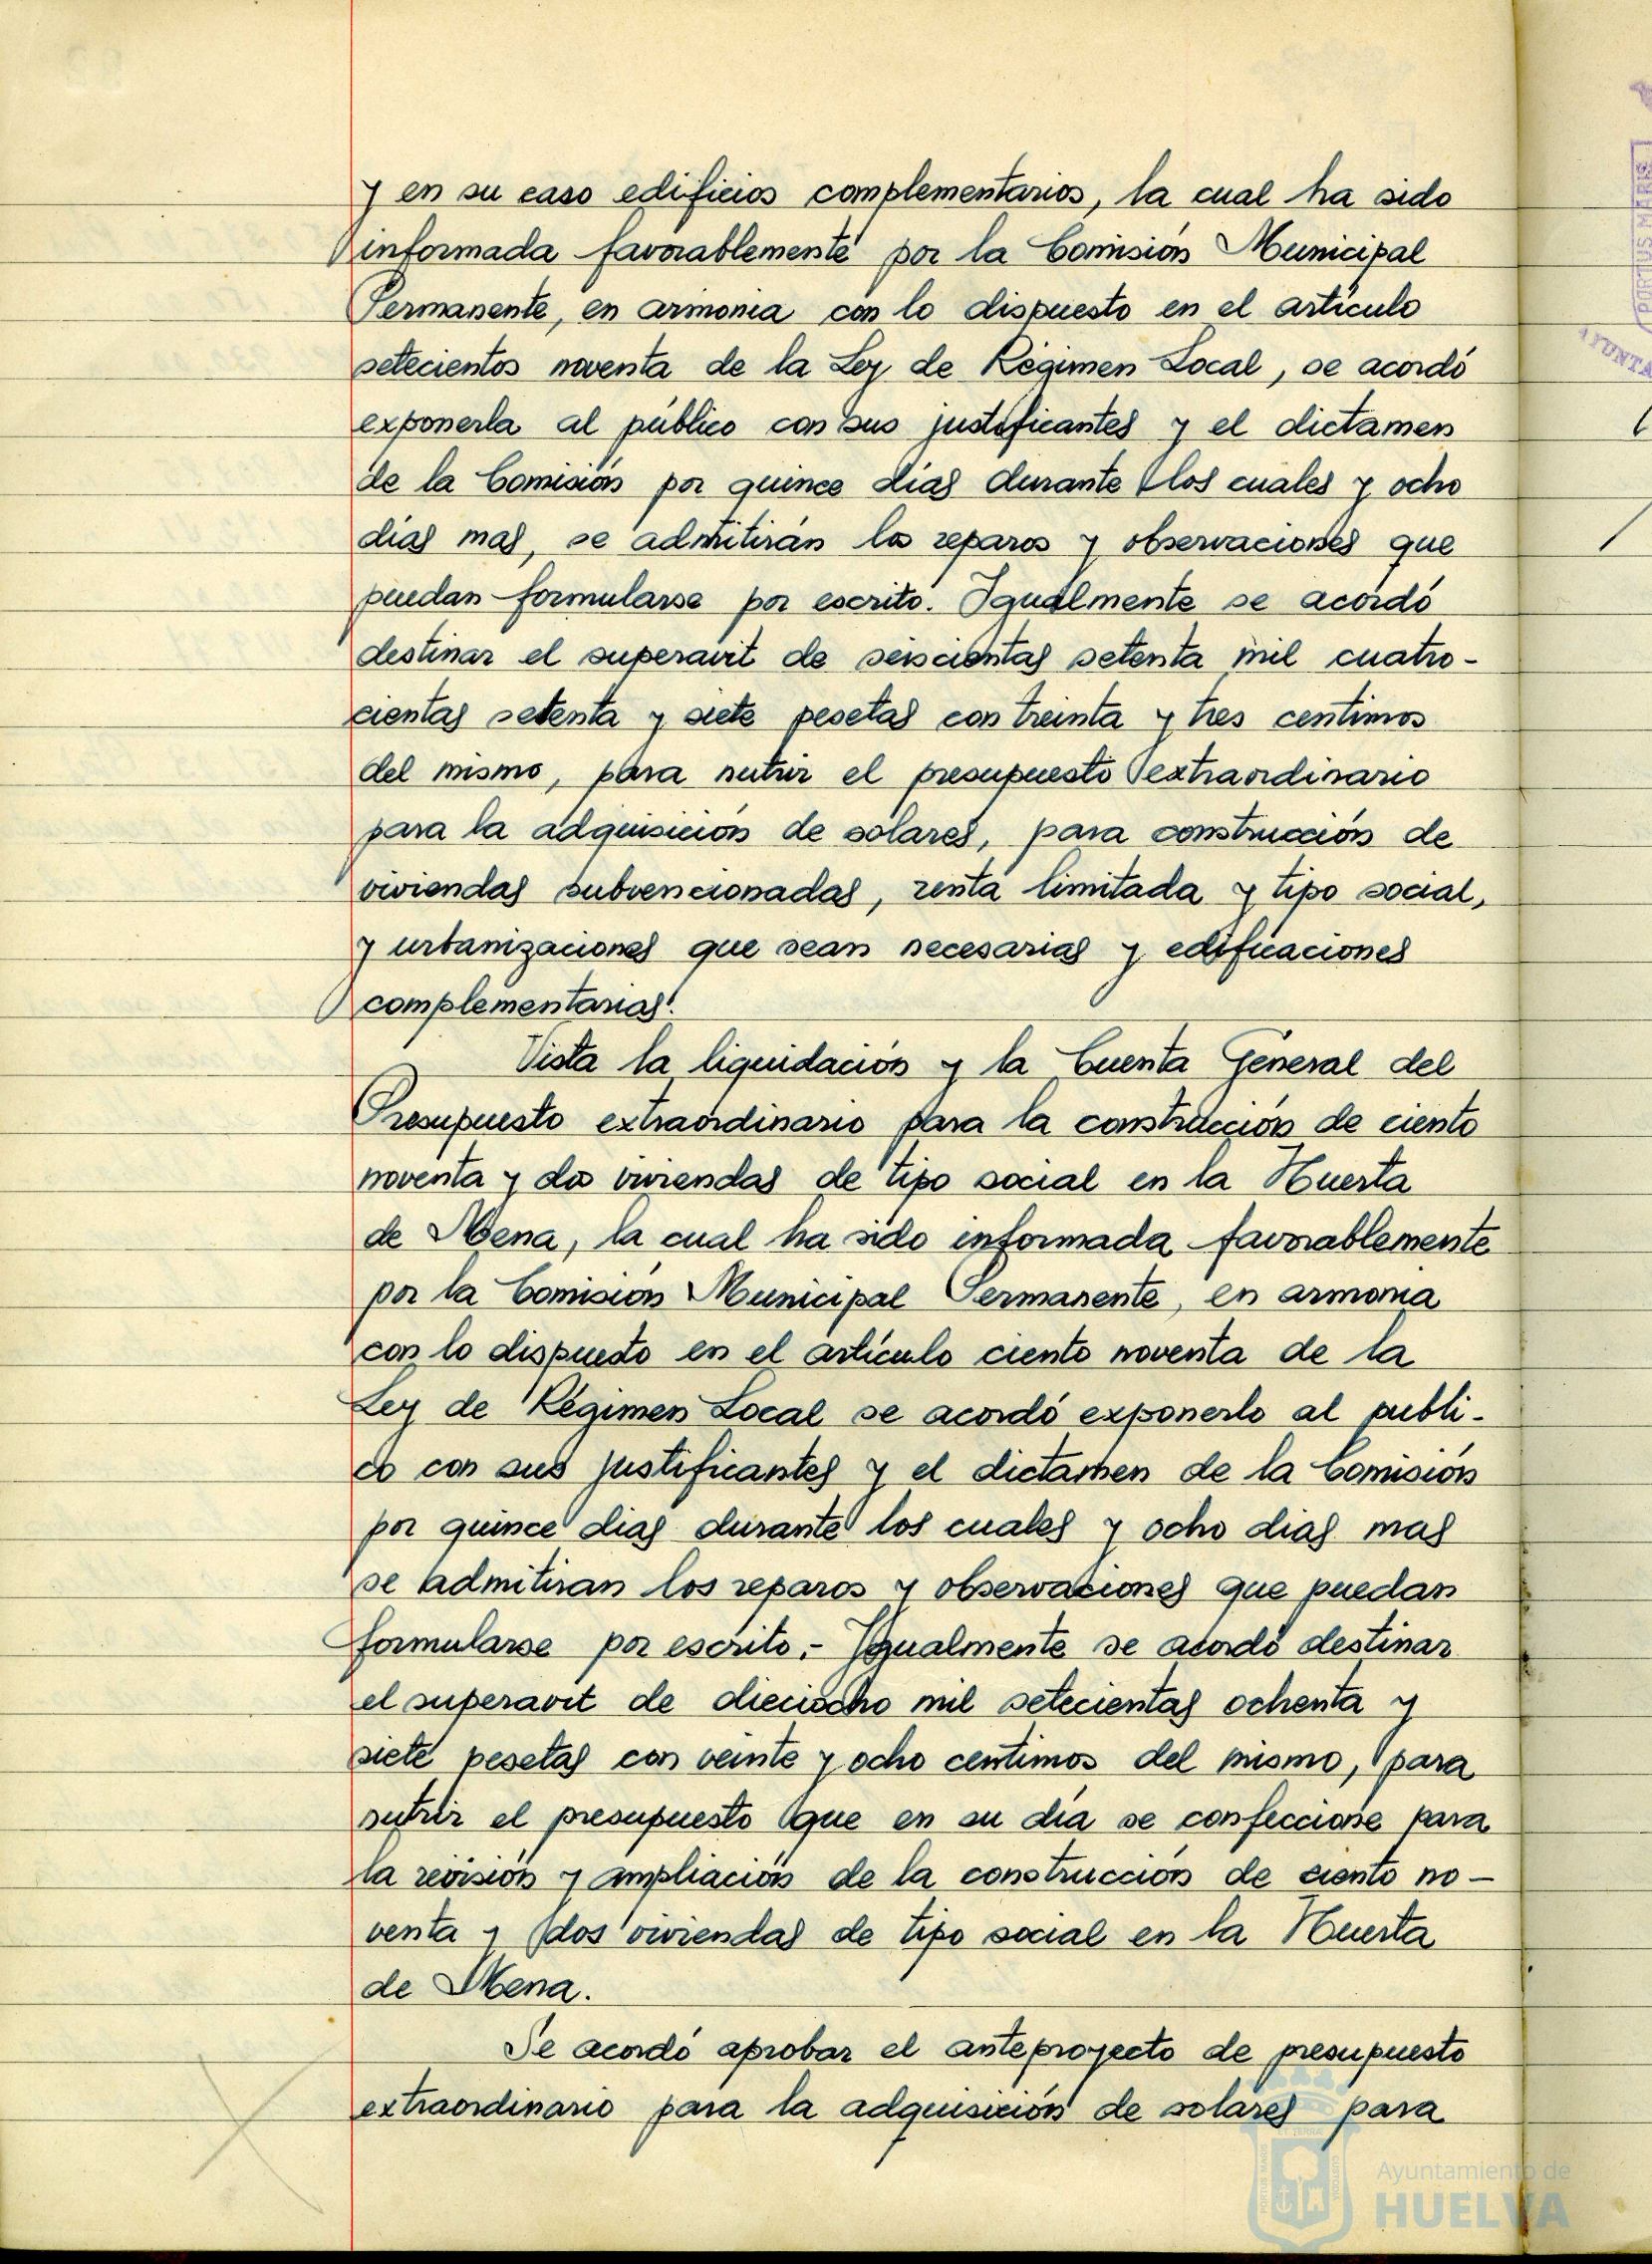 y en su caso edificios complementarios, la cual ha sido
informada favorablemente por la Comisión Municipal
Permanente, en armonia con lo dispuesto en el artículo
setecientos noventa de la Ley de Régimen Local, se acordó
exponerla al público con sus justificantes y el dictamen
de la Comisión por quince días durante los cuales y ocho
días mas, se admitirán los reparos y observaciones que
puedan formularse por escrito. Igualmente se acordó
destinar el superavit de seiscientas setenta mil cuatro-
cientas setenta y siete pesetas con treinta y tres centimos
del mismo, para nutrir el presupuesto extraordinario
para la adquisición de solares, para construcción de
viviendas subvencionadas, renta limitada y tipo social,
y urbanizaciones que sean necesarias y edificaciones
complementarias.
Vista la liquidación y la Cuenta General del
Presupuesto extraordinario para la construcción de ciento
noventa y dos viviendas de tipo social en la Huerta
de Mena, la cual ha sido informada favorablemente
por la Comisión Municipal Permanente, en armonia
con lo dispuesto en el artículo ciento noventa de la
Ley de Régimen Local se acordó exponerlo al publi-
co con sus justificantes y el dictamen de la Comisión
por quince dias durante los cuales y ocho dias mas
se admitiran los reparos y observaciones que puedan
formularse por escrito.- Igualmente se acordó destinar
el superavit de dieciocho mil setecientas ochenta y
siete pesetas con veinte y ocho centimos del mismo, para
nutrir el presupuesto que en su día se confeccione para
la revisión y ampliación de la construcción de ciento no-
venta y dos viviendas de tipo social en la Huerta
de Mena.
Se acordó aprobar el anteproyecto de presupuesto
extraordinario para la adquisición de solares para
Ayuntamiento de
HUELVA
PORTUS MARIS
AYUNTA